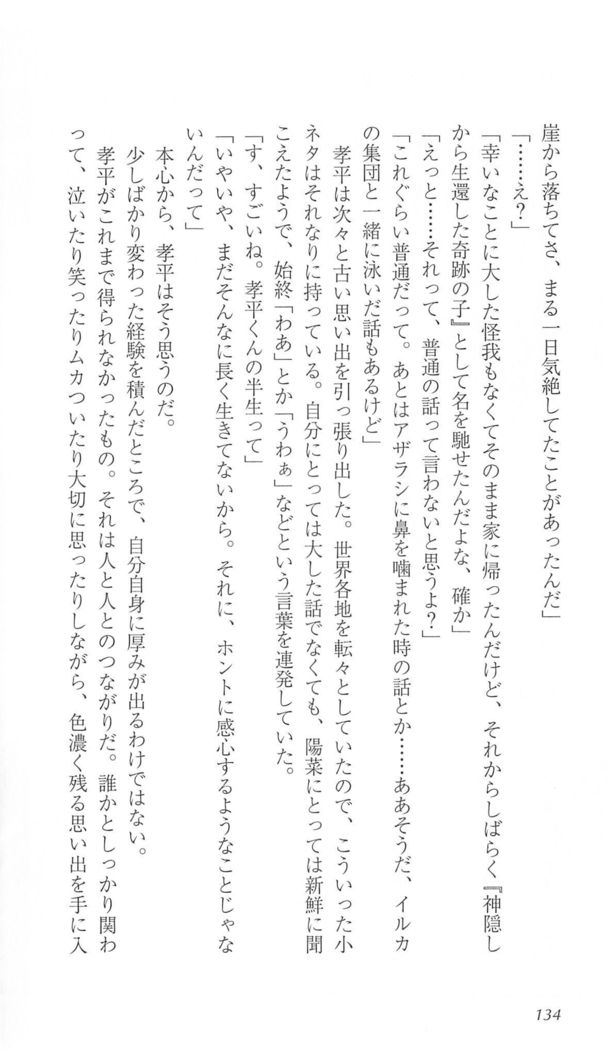 崖から落ちてさ、まる一日気絶してたことがあったんだ」
「……え？」
「幸いなことに大した怪我もなくてそのまま家に帰ったんだけど、それからしばらく『神隠し
から生還した奇跡の子』として名を馳せたんだよな、確か」
「えっと……それって、普通の話って言わないと思うよ？」
「これぐらい普通だって。あとはアザラシに鼻を噛まれた時の話とか……ああそうだ、イルカ
の集団と一緒に泳いだ話もあるけど」
孝平は次々と古い思い出を引っ張り出した。世界各地を転々としていたので、こういった小
ネタはそれなりに持っている。自分にとっては大した話でなくても、陽菜にとっては新鮮に聞
こえたようで、始終「わあ」とか「うわぁ」などという言葉を連発していた。
「す、すごいね。孝平くんの半生って」
「いやいや、まだそんなに長く生きてないから。それに、ホントに感心するようなことじゃな
いんだって」
本心から、孝平はそう思うのだ。
少しばかり変わった経験を積んだところで、自分自身に厚みが出るわけではない。
孝平がこれまで得られなかったもの。それは人と人とのつながりだ。誰かとしっかり関わ
って、泣いたり笑ったりムカついたり大切に思ったりしながら、色濃く残る思い出を手に入
134